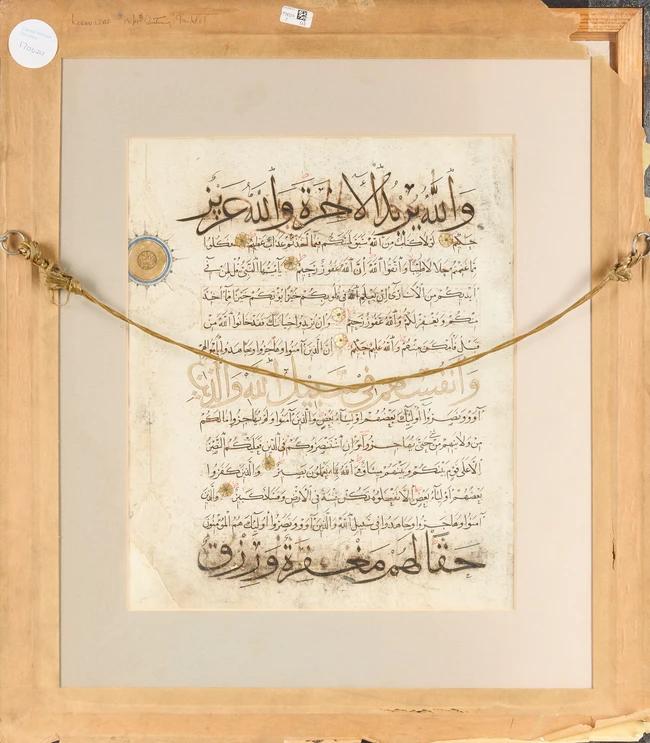 KORAN LEAF Century
والله يريد الآخرة والله عزيز
حكيم لولا كتاب من الله سبق لمسكم فيما أخذتم عذاب عظيم فكلوا
مما غنمتم حلالا طيبا واتقوا الله إن الله غفور رحيم يا أيها النبي قل لمن في
أيديكم من الأسارى إن يعلم الله في قلوبكم خيرا يؤتكم خيرا مما أخذ
منكم ويغفر لكم والله غفور رحيم وإن يريدوا خيانتك فقد خانوا الله من
قبل فأمكن منهم والله عليم حكيم إن الذين آمنوا وهاجروا وجاهدوا بأموالهم
وأنفسهم في سبيل الله والذين
آووا ونصروا أولئك بعضهم أولياء بعض والذين آمنوا ولم يهاجروا ما لكم
من ولايتهم من شيء حتى يهاجروا وإن استنصروكم في الدين فعليكم النصر
إلا على قوم بينكم وبينهم ميثاق والله بما تعملون بصير والذين كفروا
بعضهم أولياء بعض إلا تفعلوه تكن فتنة في الأرض وفساد كبير والذين
آمنوا وهاجروا وجاهدوا في سبيل الله والذين آووا ونصروا أولئك هم المؤمنون
حقا لهم مغفرة ورزق